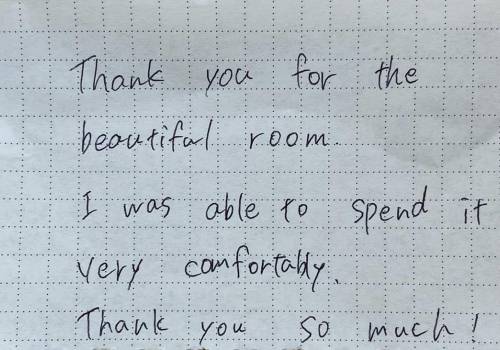 Thank you for the
beautiful room.
I was able to spend it
very comfortably.
Thank you so much!